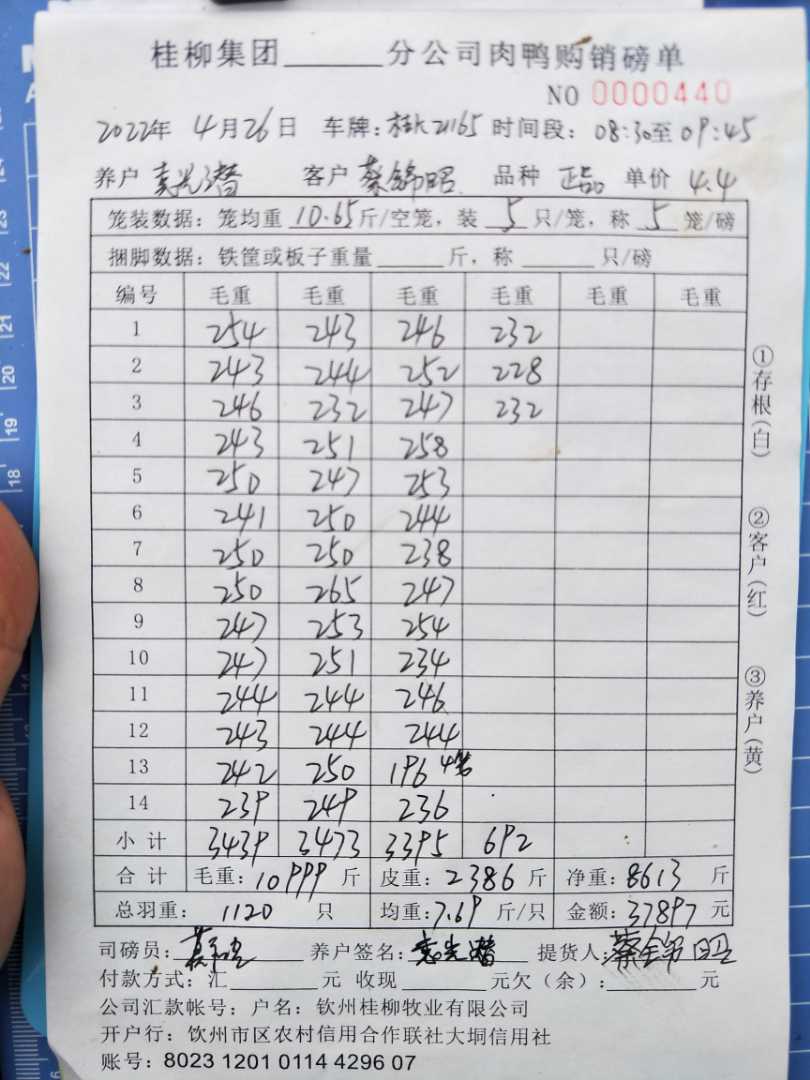 桂柳集团______分公司肉鸭购销磅单
NO 0000440
2022年 4月26日 车牌: 21165 时间段: 08:30至09:45
养户 袁光潜 客户 蔡锦昭 品种 正品 单价 4.4
笼装数据: 笼均重 10.65斤/空笼, 装 5 只/笼, 称 5 笼/磅
捆脚数据: 铁筐或板子重量______斤, 称______只/磅
编号 毛重 毛重 毛重 毛重 毛重 毛重
1 254 243 246 232
2 243 244 252 228
3 246 232 247 232
4 243 251 258
5 250 247 253
6 241 250 244
7 250 250 238
8 250 265 247
9 247 253 254
10 247 251 234
11 244 244 246
12 243 244 244
13 242 250 196 4笼
14 239 249 236
小计 3439 3473 3395 692
合计 毛重: 10999 斤 皮重: 2386 斤 净重: 8613 斤
总羽重: 1120 只 均重: 7.69 斤/只 金额: 37897 元
司磅员: 养户签名: 袁光潜 提货人: 蔡锦昭
付款方式: 汇______元 收现______元欠(余): ______元
公司汇款帐号: 户名: 钦州桂柳牧业有限公司
开户行: 钦州市区农村信用合作联社大垌信用社
账号: 8023 1201 0114 4296 07
①存根(白)
②客户(红)
③养户(黄)
23
22
21
20
19
18